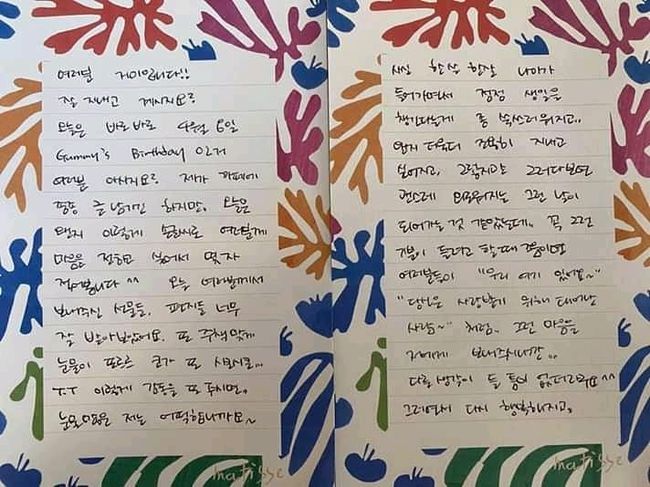 여러분 거미입니다!!
잘 지내고 계시지요?
오늘은 바로바로 4월 8일
Gummy's Birthday 인거
여러분 아시지요? 제가 카페에
종종 글 남기긴 하지만, 오늘은
왠지 이렇게 손글씨로 여러분께
마음을 전하고 싶어서 몇 자
적어봅니다 ^^ 오늘 여러분께서
보내주신 선물들, 편지들 너무
잘 받아보았어요. 또 주책맞게
눈물이 또르르 코가 또 시큰..
T.T 이렇게 감동을 또 주시면,
눈물많은 저는 어떡합니까요~
matisse
사실 한살 한살 나이가
들어가면서 점점 생일을
챙기다는게 좀 쑥쓰러워지고..
왠지 더욱더 조용히 지내고
싶어지고, 그렇지만 그러다보면
괜스레 외로워지는 그런 날이
되어가는 것 같았는데.. 꼭 그런
기분이 들려고 할 때 쯤이면
여러분들이 "우리 여기 있어요~"
"당신은 사랑받기 위해 태어난
사람~" 처럼. 그런 마음을
저에게 보내주시니깐..
다른 생각이 들 틈이 없더라구요 ^^
그러면서 다시 행복해지고,
matisse